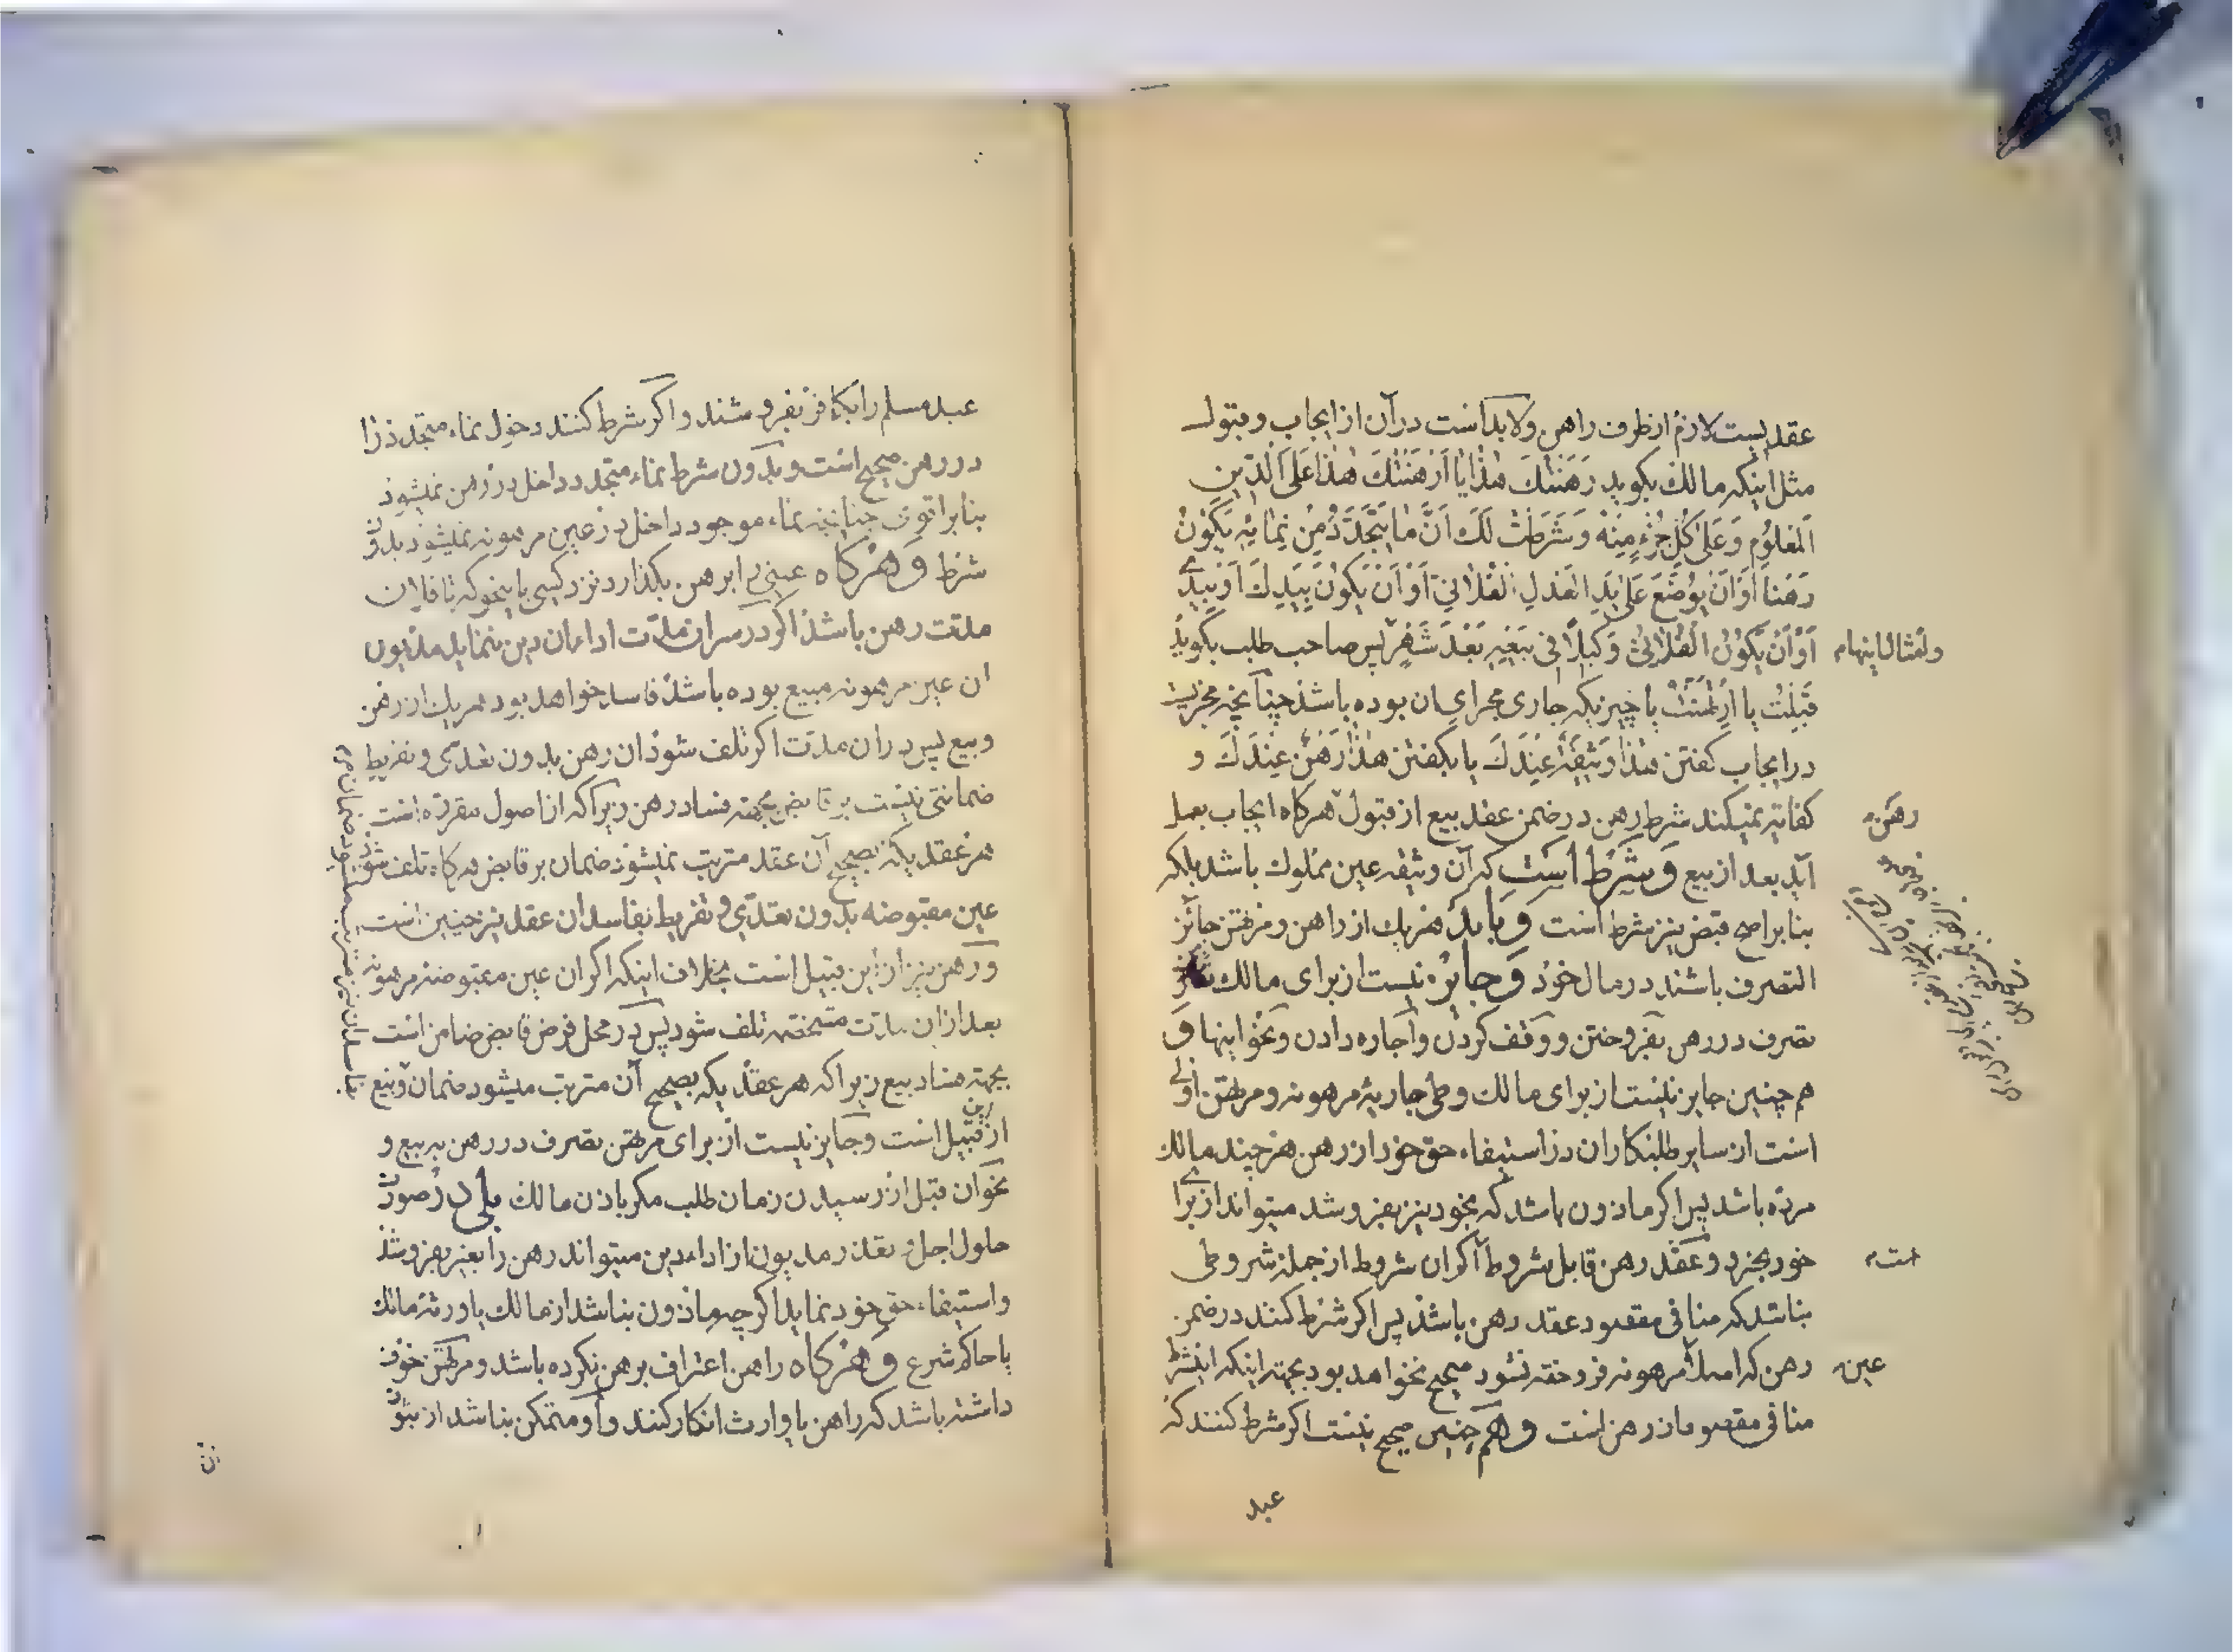 عقدیست لازم از طرف راهن ولابد است در آن از ایجاب و قبول
مثل اینکه مالک بکوید رَهَنتُکَ هذا یا اَرهَنتُکَ هذا عَلَی الدَّینِ
المَعلُومِ وَعَلی کُلِّ جُزءٍ مِنهُ وَشَرَطتُ لَکَ اَنَّ ما یَتَجَدَّدُ مِن نِمائِه یَکُونُ
رَهنا اَو اَن یُوضَعَ عَلی یَدِ العَدلِ الفُلانِی اَو اَن یَکُونَ بِیَدِکَ اَو بِیَدی
اَو اَن یَکُونَ الفُلانِیُّ وَکیلاً فی بَیعِه بَعدَ شَهرٍ پس صاحب طلب بکوید
وامثال اینهام
قَبِلتُ یا اِرتَهَنتُ یا چیزیکه جاری مجرای ان بوده باشد چنانچه مجزیست
در ایجاب کفتن هذا وَثیقَةٌ عِندَکَ یا بکفتن هذا رَهنٌ عِندَکَ و
کفایة نمیکند شرط رهن در ضمن عقد بیع از قبول هرکاه ایجاب بعمل
رهن
آید بعد از بیع وشرط است که آن وثیقه عین مملوک باشد بلکه
بنابر اصح قبض نیز شرط است وباید هریک از راهن و مرتهن جائز
التصرف باشند در مال خود وجایز نیست از برای مالک
تصرف در رهن بفروختن و وقف کردن و اجاره دادن و نحو اینها و
هم چنین جایز نیست از برای مالک وطی جاریهٔ مرهونه و مرتهن اولی
است از سایر طلبکاران در استیفاء حق خود از رهن هر چند مالک
مرده باشد پس اکر ماذون باشد که بخود نیز بفروشد میتواند از برای
خود بخرد و عقد رهن قابل شروط اکر ان شروط از جمله شروطی
است
نباشد که منافی مقصود عقد رهن باشد پس اکر شرط کنند در ضمن
رهن که اصلا مرهونه فروخته نشود صحیح نخواهد بود بجهة اینکه اینشرط
عین
منافی مقصود از رهن است وهم چنین صحیح نیست اکر شرط کنند که
عبد
عبد مسلم را بکافر بفروشند و اکر شرط کنند دخول نماء متجدد را
در رهن صحیح است و بدون شرط نماء متجدد داخل در رهن نمیشود
بنابر اقوی چنانچه نماء موجود داخل در عین مرهونه نمیشود بدون
شرط وهرکاه عینی را برهن بکذارد نزد کسی باینحو که تا فلان
مدت رهن باشد اکر در سر ان مدّت اداء ان دین ننماید مدیون
ان عین مرهونه مبیع بوده باشد فاسد خواهد بود هریک از رهن
و بیع پس در ان مدت اکر تلف شود ان رهن بدون تعدّی و تفریط
ضمانتی نیست بر قابض بجهة فساد رهن زیرا که از اصول مقرره است
هر عقدیکه بصحیح آن عقد مترتب نمیشود ضمان بر قابض هرکاه تلف شود
عین مقبوضه بدون تعدّی و تفریط بفاسد ان عقد نیز چنین است
و رهن نیز از این قبیل است بخلاف اینکه اکر ان عین مقبوضه مرهونه
بعد از ان مدت مشخصه تلف شود پس در محل فرض قابض ضامن است
بجهة فساد بیع زیرا که هر عقدیکه بصحیح آن مترتب میشود ضمان و بیع
بفاسد ان نیز مترتب میشود ضمان
از این قبیل است و جایز نیست از برای مرتهن تصرف در رهن به بیع و
نحو ان قبل از رسیدن زمان طلب مکر باذن مالک بلی در صورت
حلول اجل و تعذر مدیون از اداء دین میتواند رهن را بغیر بفروشد
و استیفاء حق خود نماید اکر چه ماذون نباشد از مالک یا ورثهٔ مالک
یا حاکم شرع وهرکاه راهن اعتراف برهن نکرده باشد و مرتهن خوف
داشته باشد که راهن یا وارث انکار کنند و او متمکن نباشد از ثبوت